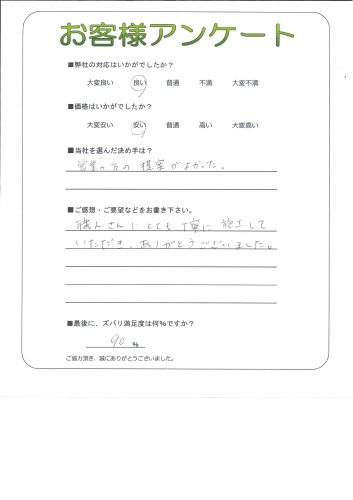 お客様アンケート
■弊社の対応はいかがでしたか？
大変良い 良い 普通 不満 大変不満
■価格はいかがでしたか？
大変安い 安い 普通 高い 大変高い
■当社を選んだ決め手は？
営業の方の提案がよかった。
■ご感想・ご要望などをお書き下さい。
職人さんにとても丁寧に施工して
いただき、ありがとうございました。
■最後に、ズバリ満足度は何%ですか？
90 %
ご協力頂き、誠にありがとうございました。